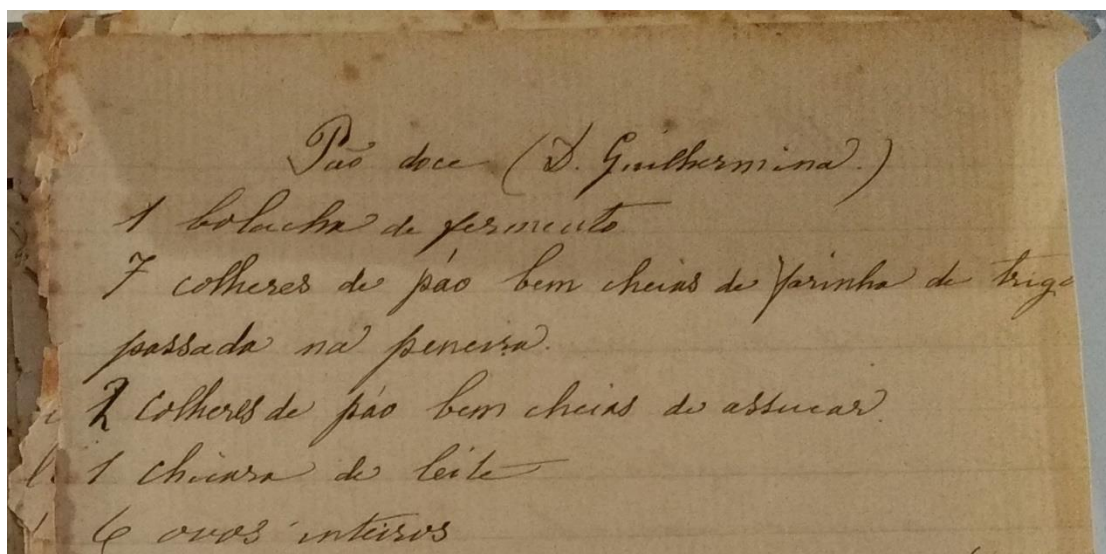 Pão doce (D. Guilhermina.)
1 bolacha de fermento
7 colheres de páo bem cheias de farinha de trigo
passada na peneira.
2 colheres de páo bem cheias de assucar
1 chicara de leite
6 ovos inteiros